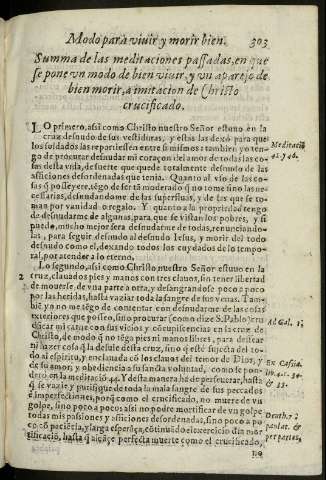 Modo para viuir y morir bien. 303
Summa de las meditaciones passadas, en que
se pone vn modo de bien viuir, y vn aparejo de
bien morir, a imitacion de Christo
crucificado.
LO primero, asi como Christo nuestro Señor estuuo en la
cruz desnudo de sus vestiduras, y estas las dexó para que
los soldados las repartiessen entre si mismos: tambien yo ten-
go de procurar desnudar mi coraçon del amor de todas las co-
sas desta vida, de suerte que quede totalmente desnudo de las
aficiones desordenadas que tenia. Quanto al vso de las co-
sas q̃ posseyere, tẽgo de ser tã moderado q̃ no tome sino las ne-
cessarias, desnudandome de las superfluas, y de las que se to-
man por vanidad o regalo. Y quanto a la propiedad tengo
de desnudarme de algunas, para que se vistan los pobres, y si
puedo, mucho mejor sera desnudarme de todas, renunciando-
las, para seguir desnudo al desnudo Iesus, y morir del todo
desnudo como el, dexando todos los cuydados de lo tempo-
ral, por atender a lo eterno.
Meditació
41. y 46.
2 Lo segundo, asi como Christo nuestro Señor estuuo en la
cruz, clauado pies y manos con tres clauos, sin tener libertad
de mouerse de vna parte a otra, y desangrandose poco a poco
por las heridas, hasta vaziar toda la sangre de sus venas. Tam-
biẽ yo no me tẽgo de contentar con desnudarme de las cosas
exteriores que posseo, sino procurar (como dize S. Pablo) cru
cificar mi carne con sus vicios y cõcupiscencias en la cruz de
Christo, de modo q̃ no tẽga pies ni manos libres, para dessear
ni hazer cosa q̃ la desuie desta cruz, sino q̃ estè sujecta del to-
do al espiritu, y enclauada cõ los clauos del temor de Dios, y
de su amor, y obediencia a su sancta voluntad, como se pon-
Ad Gal. 5.
Ex Cassia.
& 35.
q̃ se vazie y purifique de toda la mala sangre de sus peccados
e imperfecciones, porq̃ como el crucificado, no muere de vn
golpe, sino poco a poco: asi no podre mortificar de vn golpe
todas mis passiones y aficiones desordenadas, sino poco a po
co cõ paciẽcia, y larga esperãça, cõtinuãdo el exercicio dla mor
tificació, hasta q̃ alcãçe perfecta muerte como el crucificado,